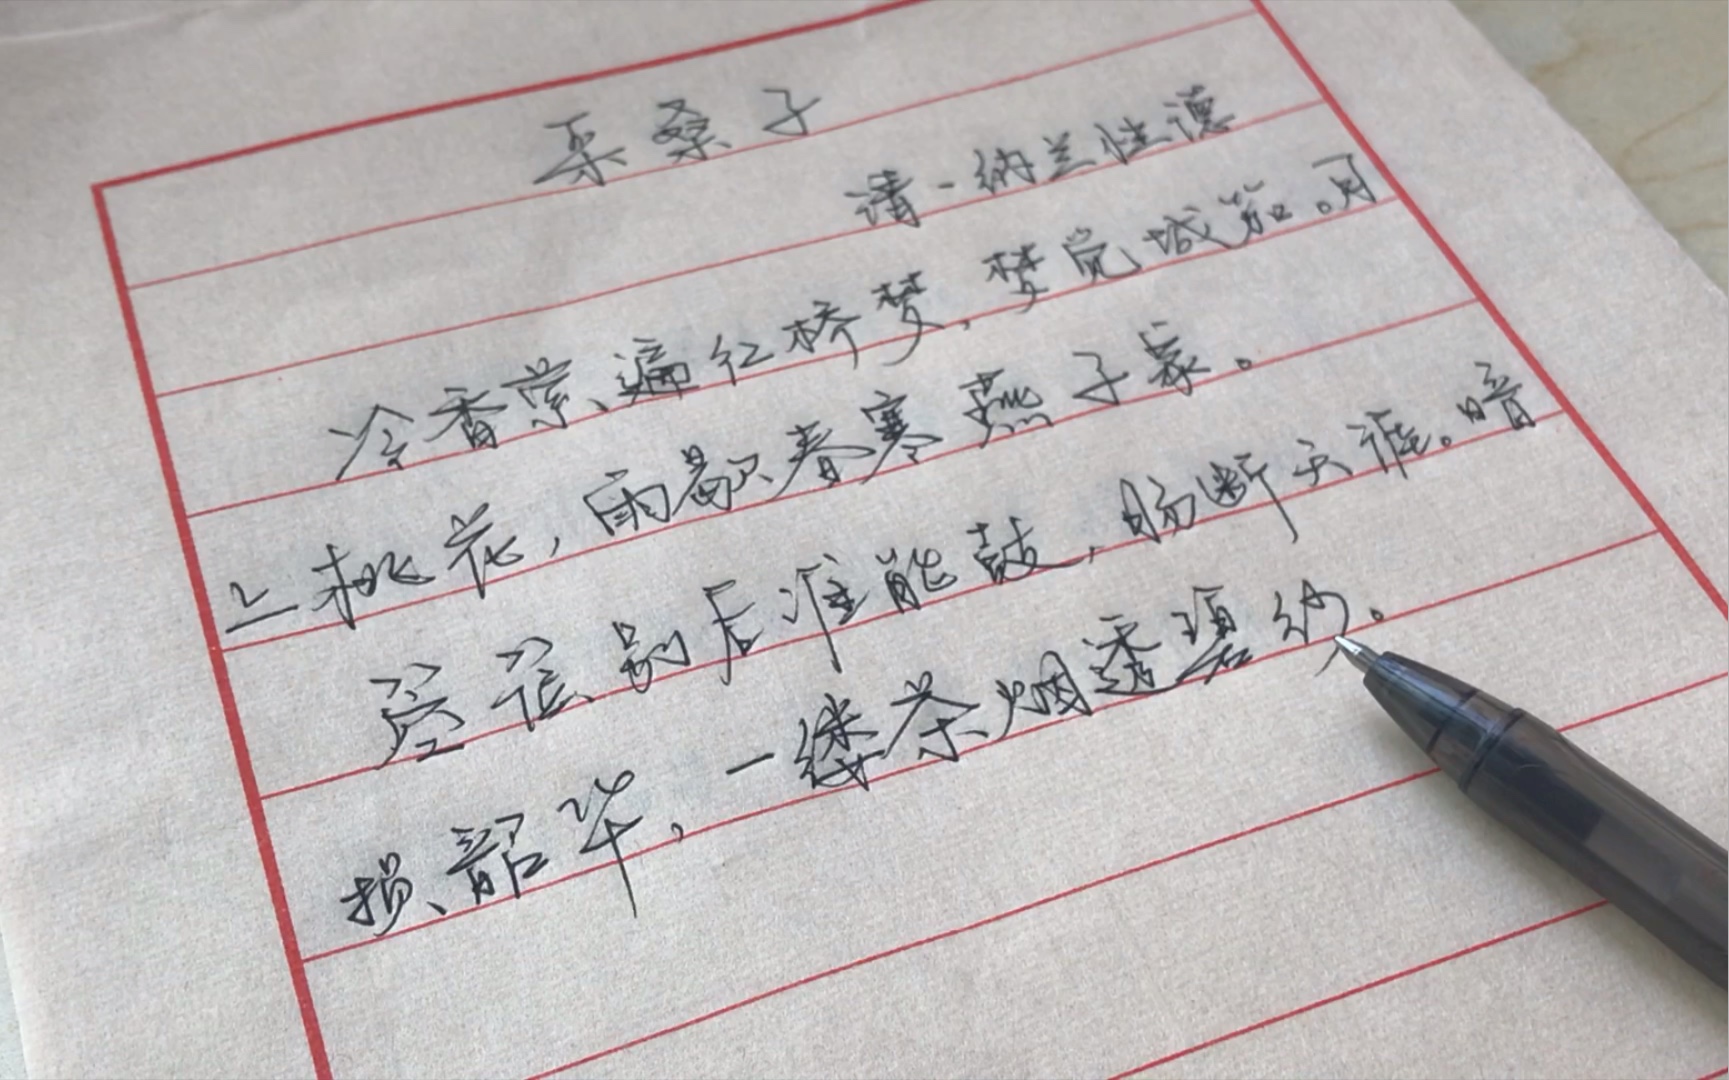 采桑子
清-纳兰性德
冷香萦遍红桥梦，梦觉城笳。月
上桃花，雨歇春寒燕子家。
箜篌别后谁能鼓，肠断天涯。暗
损韶华，一缕茶烟透碧纱。